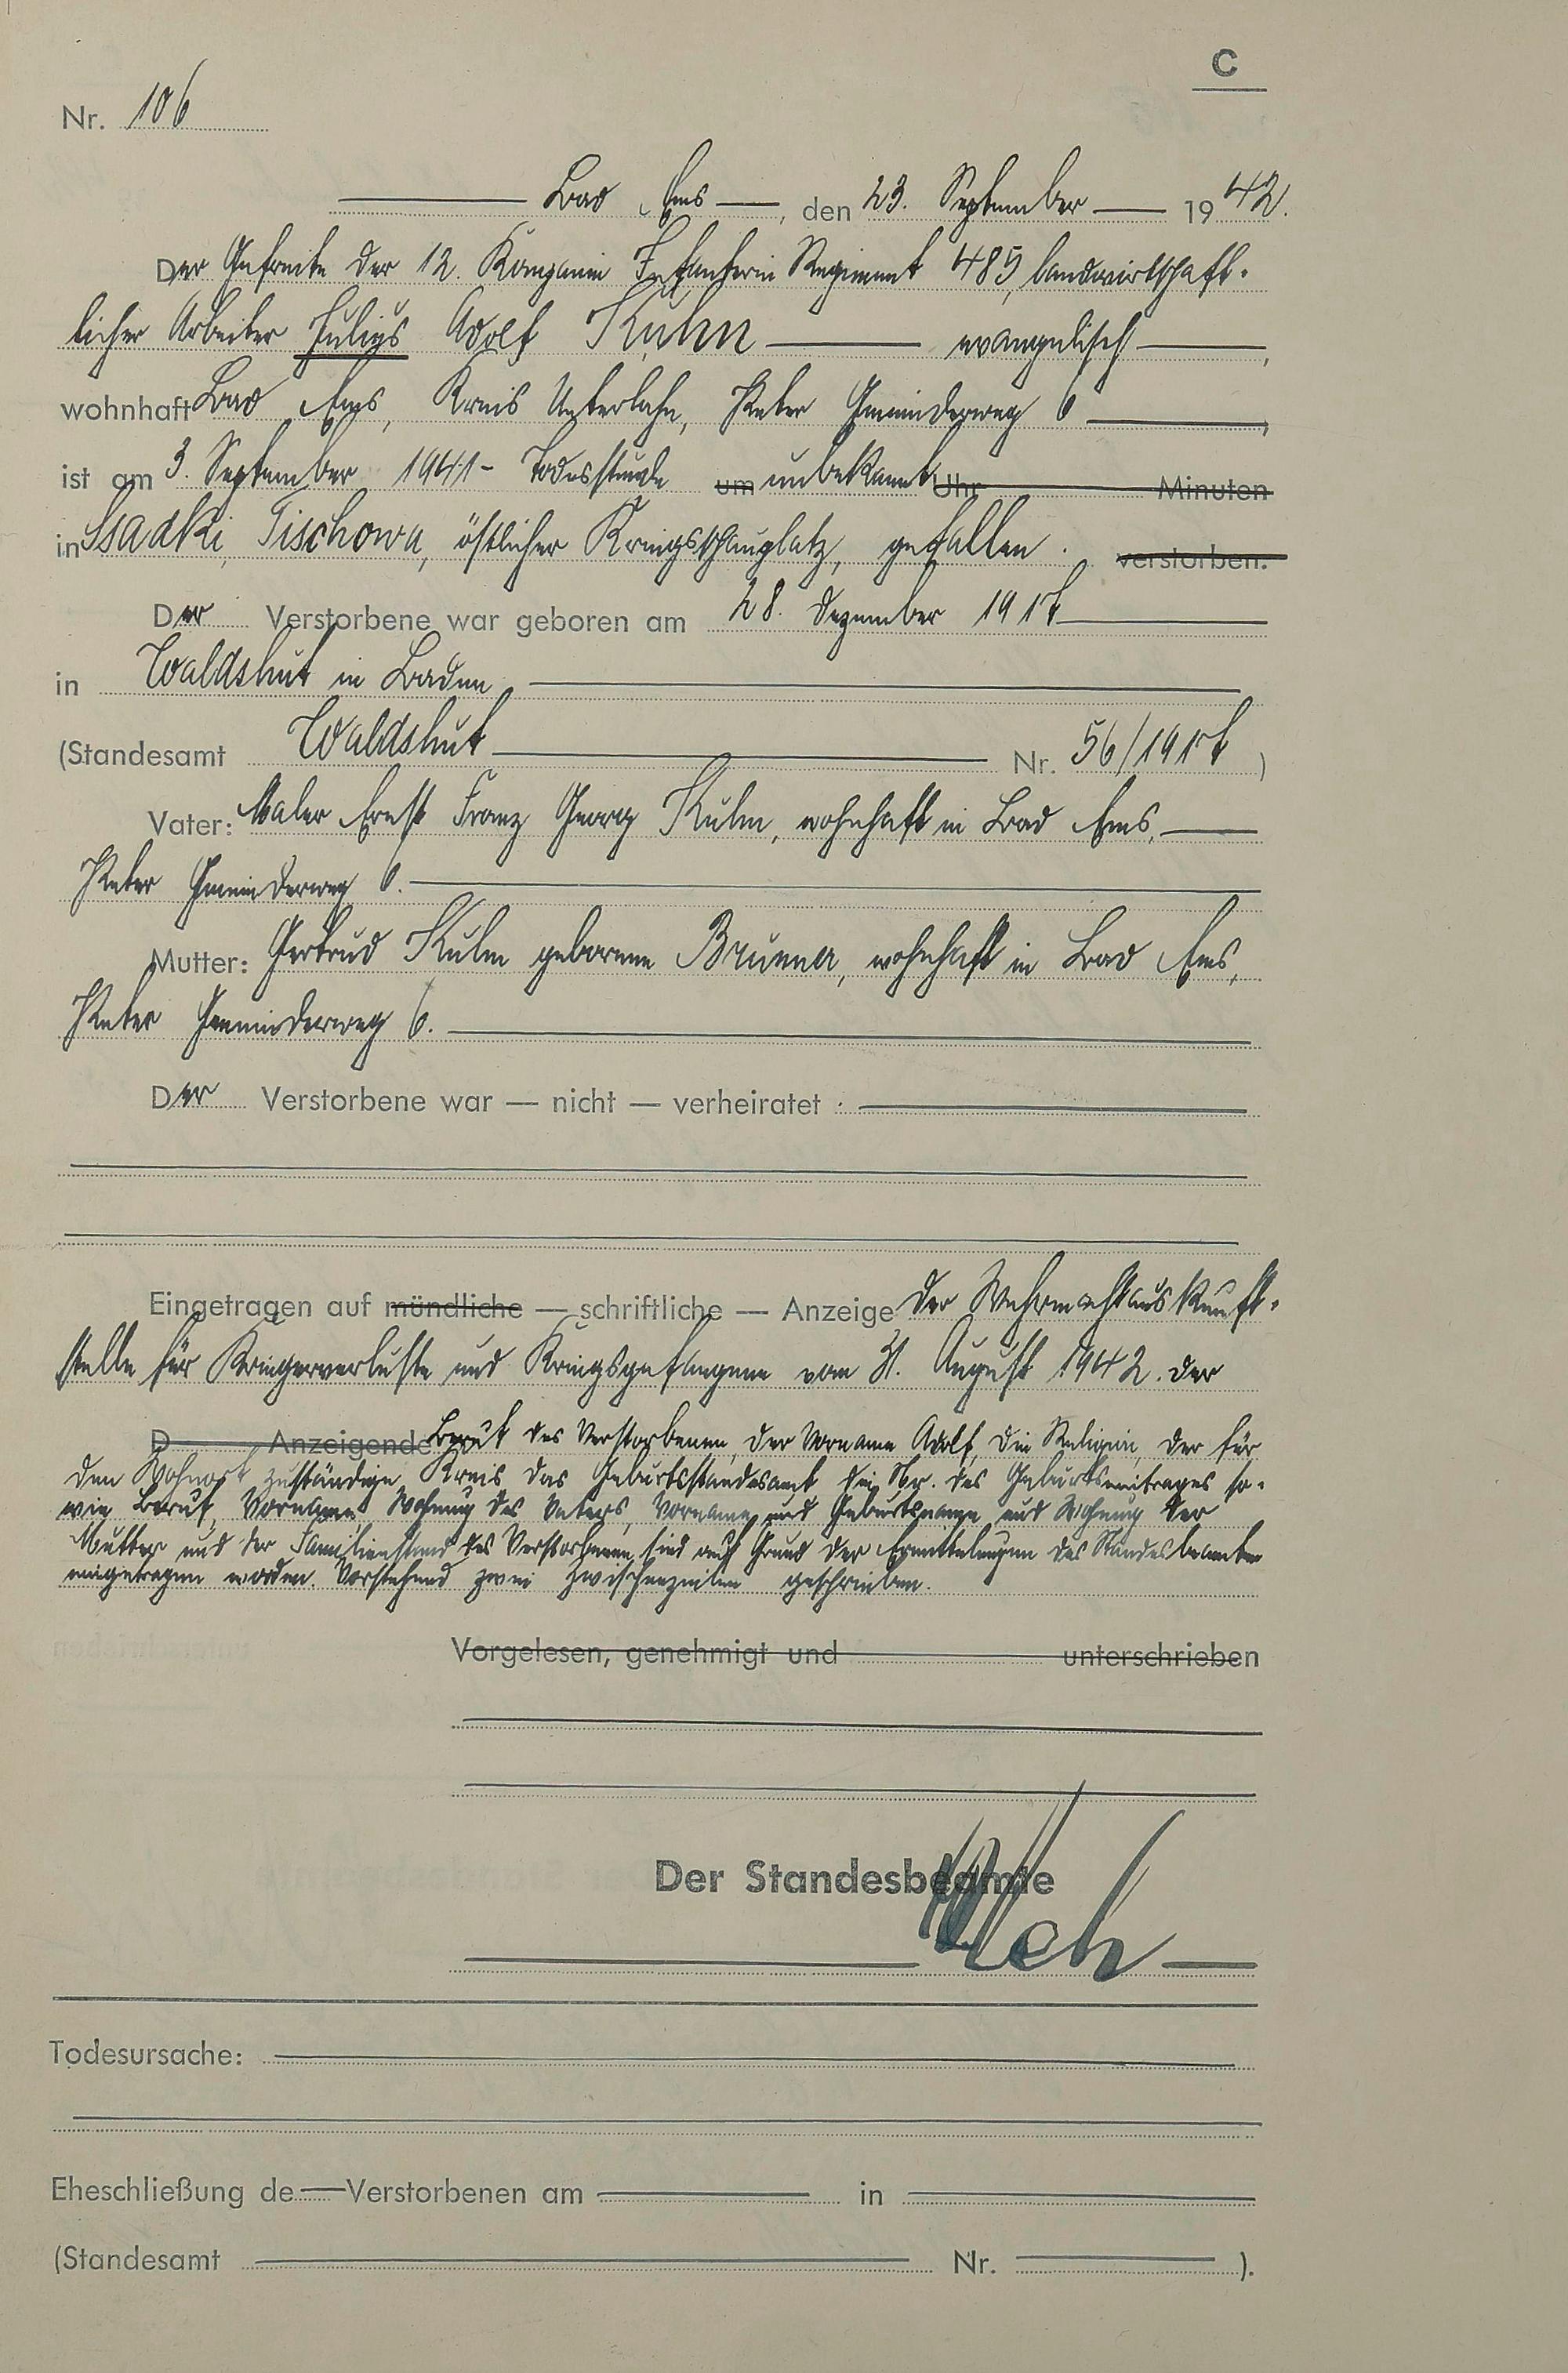 C
Nr. 106
Bad Ems, den 23. September 1942.
Der Gefreite der 12. Kompanie Infanterie Regiment 485, landwirtschaft-
licher Arbeiter Julius Adolf Kuhn evangelisch,
wohnhaft Bad Ems, Kreis Unterlahn,
ist am 3. September 1941 - Todesstunde um unbekannt Uhr Minuten
in Ssadki, Tischowa, östlicher Kriegsschauplatz, gefallen. verstorben.
Der Verstorbene war geboren am 28. Dezember 191
in Waldshut in Baden
(Standesamt Waldshut Nr. 56/191 )
Vater: Maler Ernst Franz Georg Kuhn, wohnhaft in Bad Ems,
6.
Mutter: Gertrud Kuhn geborene Brunner, wohnhaft in Bad Ems,
6.
Der Verstorbene war — nicht — verheiratet.
Eingetragen auf mündliche — schriftliche — Anzeige der Wehrmachtauskunft-
stelle für Kriegerverluste und Kriegsgefangene vom 31. August 1942. Der
D Anzeigende Beruf des Verstorbenen, der Vorname Adolf, die Religion, der für
den Wohnort zuständige Kreis das Geburtsstandesamt die Nr. des Geburtseintrages so-
wie Beruf, Vornamen, Wohnung des Vaters, Vorname und Geburtsname und Wohnung der
Mutter und der Familienstand des Verstorbenen sind auf Grund der Ermittelungen des Standesbeamten
eingetragen worden. Vorstehend zwei Zwischenzeilen geschrieben.
Vorgelesen, genehmigt und unterschrieben
Der Standesbeamte
Todesursache:
Eheschließung de Verstorbenen am in
(Standesamt Nr. ).